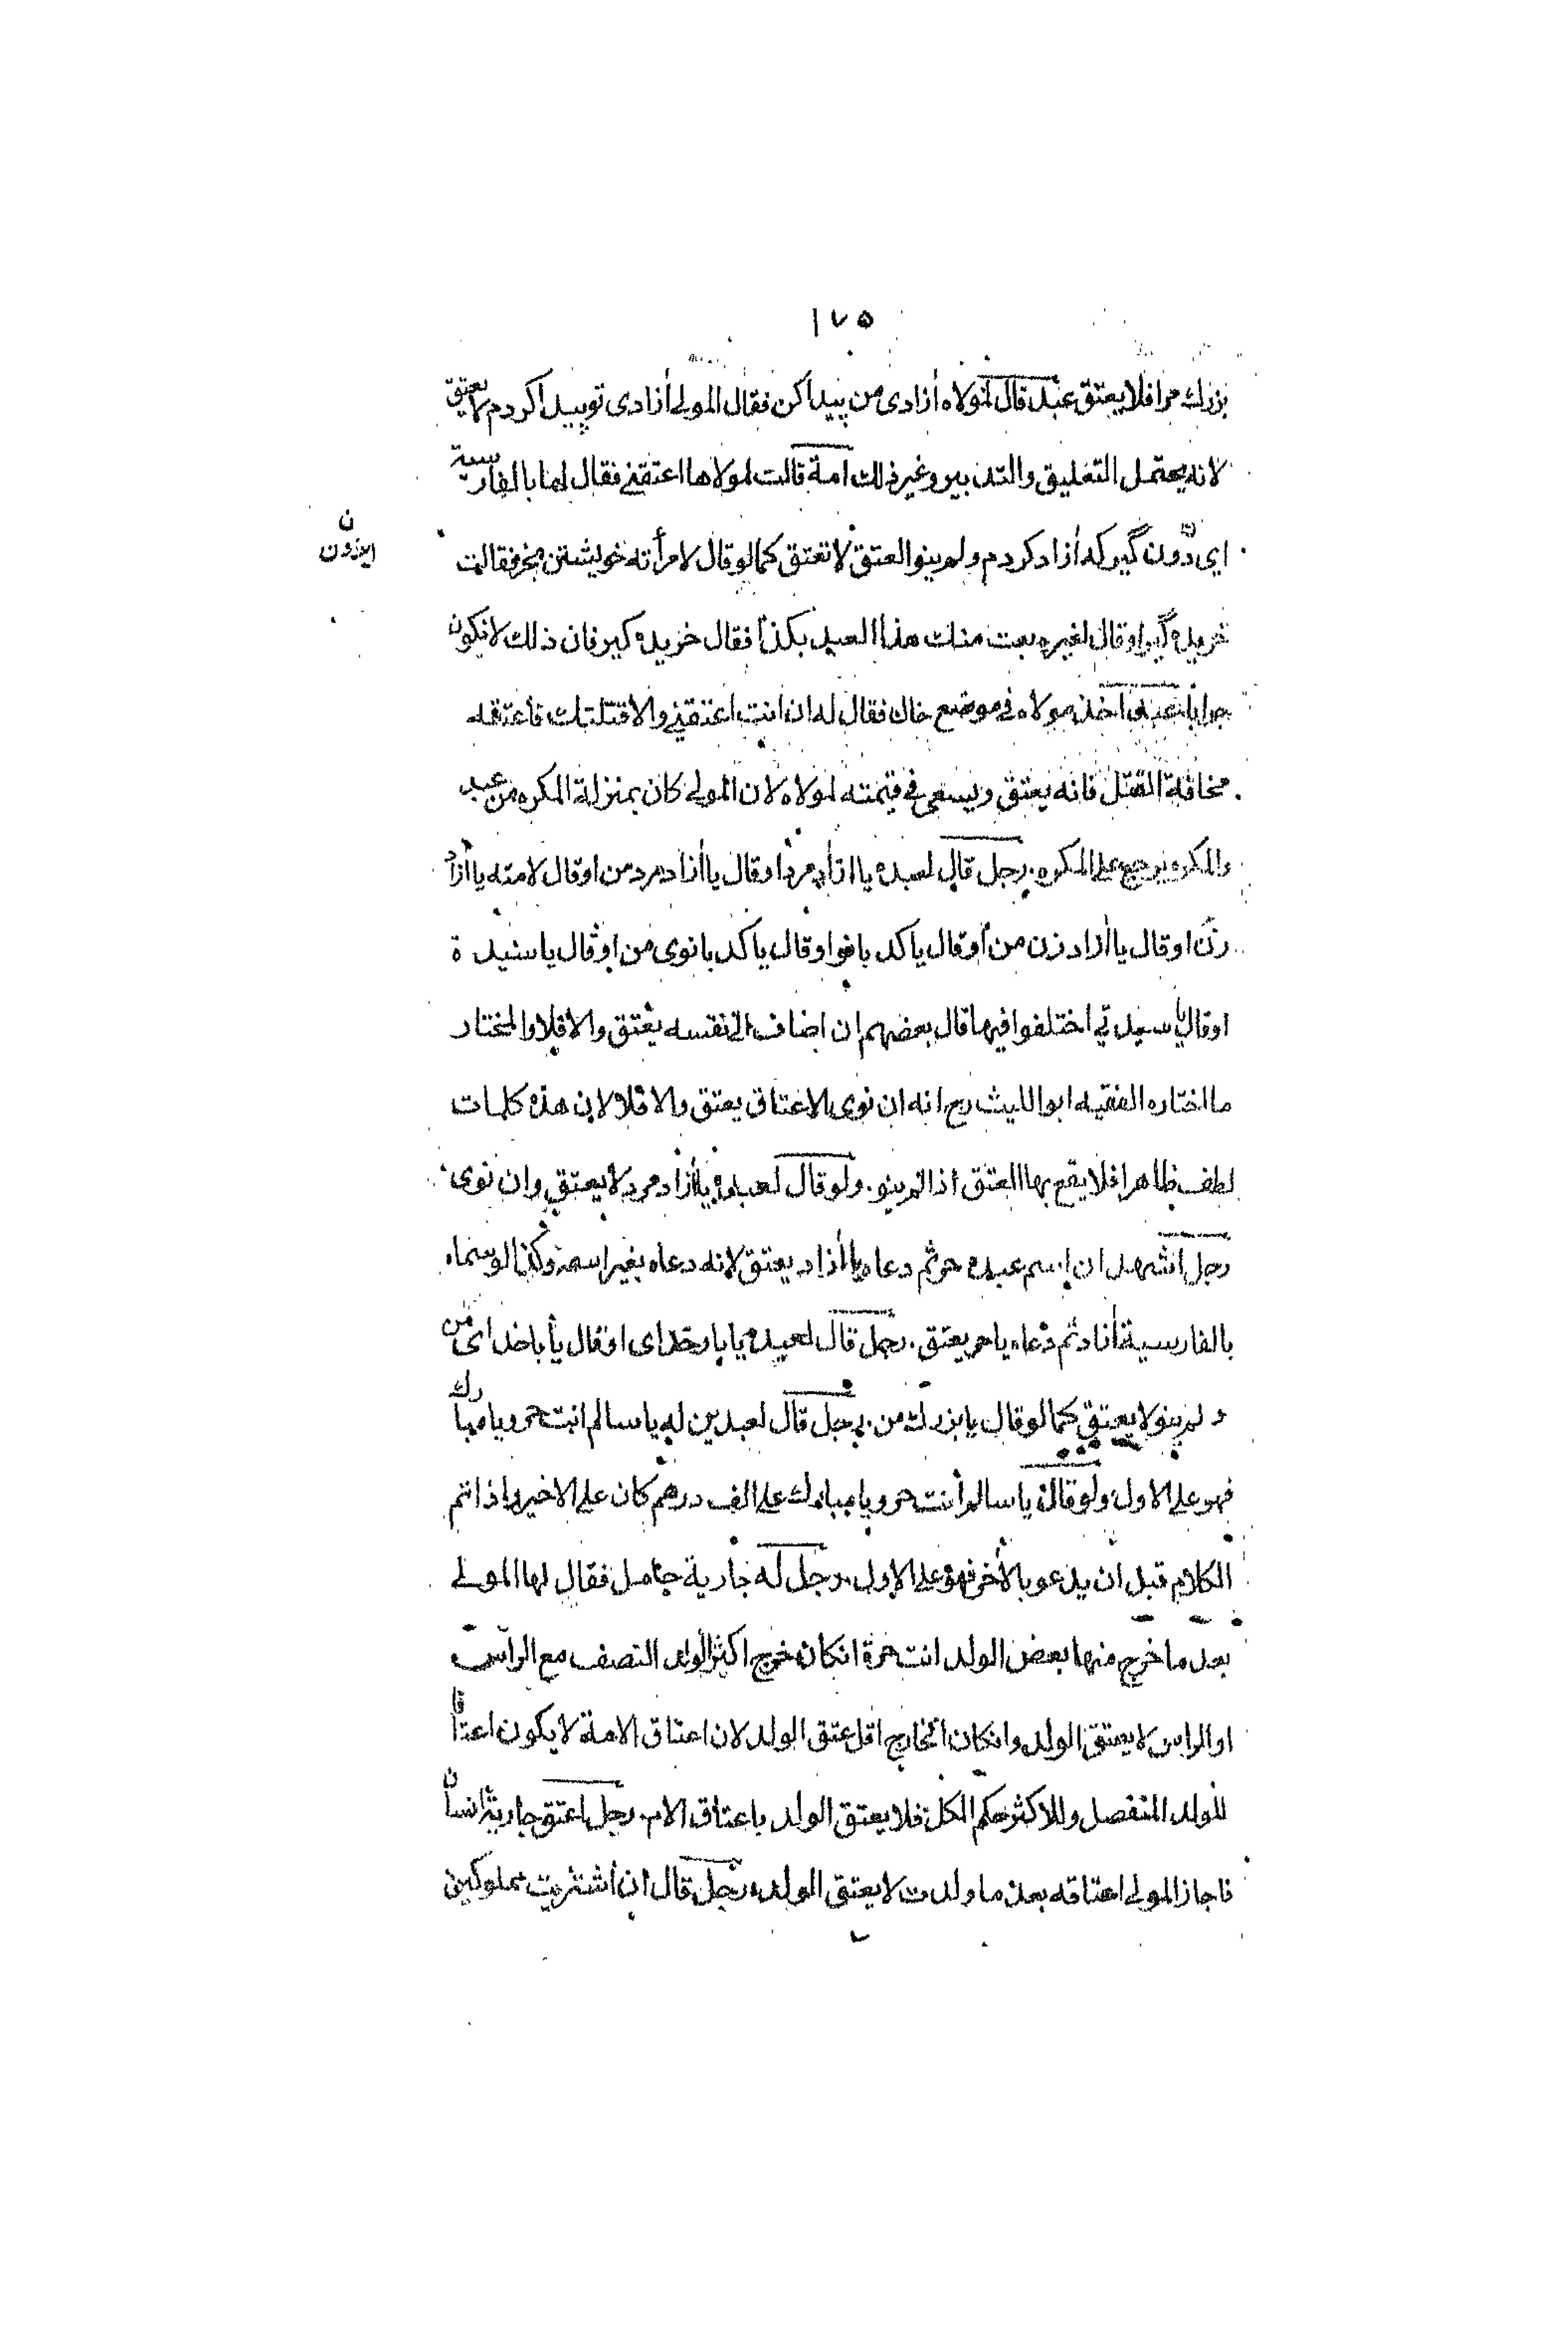 ١٧٥
بزرك مرا فلا يعتق عبد قال لمولاه أزادى من پيدا كن فقال المولى أزادى تو پيدا كردم لا يعتق
لانه يحتمل التعليق والتدبير وغير ذلك امة قالت لمولاها اعتقني فقال لها بالفارسية
اى دون گير كه أزاد كردم ولم ينو العتق لا تعتق كما لو قال لامرأته خويشتن بخر فقالت
خريده گير او قال لغيره بعت منك هذا العبد بكذا فقال خريده كير فان ذلك لا يكون
جوابا عبد اخذ مولاه في موضع خال فقال له ان انت اعتقتني والا قتلتك فاعتقه
مخافة القتل فانه يعتق ويسعى في قيمته لمولاه لان المولى كان بمنزلة المكره من عبد
والمكره يرجع على المكره. رجل قال لعبده يا ازاد مرد او قال يا أزاد مرد من او قال لامته يا أزاد
زن او قال يا أزاد زن من او قال يا كد بانو او قال يا كد بانوى من او قال يا سيدة
او قال يا سيدتي اختلفوا فيها قال بعضهم ان اضاف الى نفسه يعتق والا فلا والمختار
ما اختاره الفقيه ابو الليث رح انه ان نوى الاعتاق يعتق والا فلا لان هذه كلمات
لطف ظاهرا فلا يقع بها العتق اذا لم ينو. ولو قال لعبده يا أزاد مرد لا يعتق وان نوى
رجل اشهد ان اسم عبده حر ثم دعاه يا أزاد يعتق لانه دعاه بغير اسمه وكذا لو سماه
بالفارسية أزاد ثم دعاه يا حر يعتق. رجل قال لعبده يا بار خداى او قال يا باخداى من
و لم ينو لا يعتق كما لو قال يا بزرك من. رجل قال لعبدين له يا سالم انت حر ويا مبارك
فهو على الاول ولو قال يا سالم أنت حر ويا مبارك على الف درهم كان على الاخير واذا تم
الكلام قبل ان يدعو بالأخر فهو على الاول. رجل له جارية حامل فقال لها المولى
بعد ما خرج منها بعض الولد انت حرة انكان خرج اكثر الولد النصف مع الرأس
او الراس لا يعتق الولد وانكان الخارج اقل عتق الولد لان اعتاق الامة لا يكون اعتاقا
للولد المنفصل وللاكثر حكم الكل فلا يعتق الولد باعتاق الام. رجل اعتق جارية انسان
فاجاز المولى اعتاقه بعد ما ولدت لا يعتق الولد، رجل قال ان اشتريت مملوكين